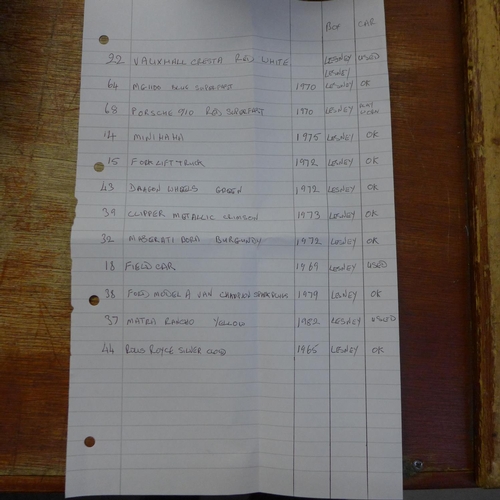 BOX CAR
22 VAUXHALL CRESTA RED WHITE LESNEY USED
LESNEY
64 MG1100 SUPERFAST 1970 LESNEY OK
68 PORSCHE 910 RED SUPERFAST 1970 LESNEY
14 MINI HAHA 1975 LESNEY OK
15 FORK LIFT TRUCK 1972 LESNEY OK
43 DRAGON WHEELS GREEN 1972 LESNEY OK
39 CLIPPER METALLIC CRIMSON 1973 LESNEY OK
32 MASERATI BORA BURGUNDY 1972 LESNEY OK
18 FIELD CAR 1969 LESNEY USED
38 FORD MODEL A VAN CHAMPION SPARK PLUGS 1979 LESNEY OK
37 MATRA RANCHO YELLOW 1982 LESNEY USED
44 ROLLS ROYCE SILVER 1965 LESNEY OK